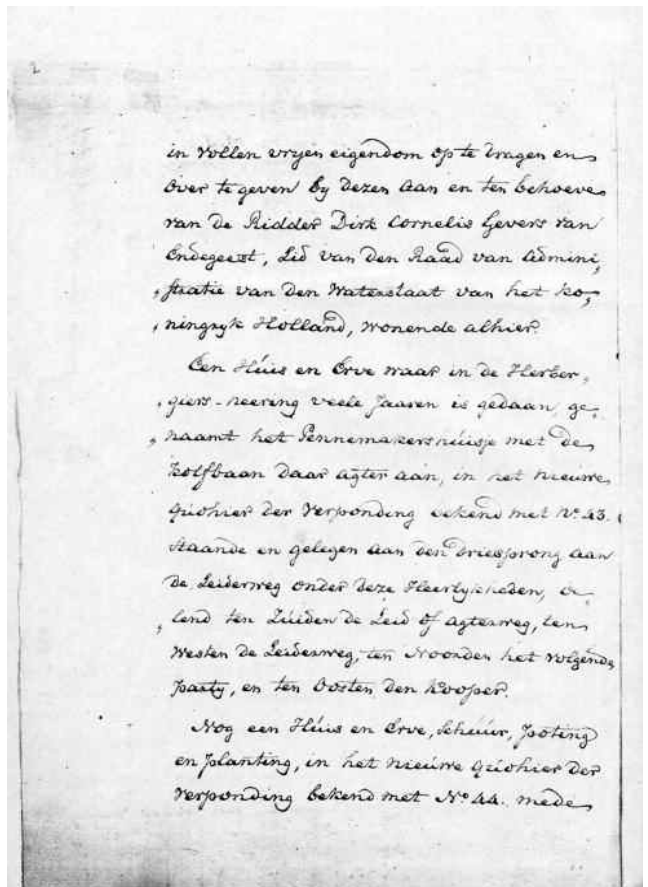 2
in vollen vryen eigendom op te dragen en
over te geven by dezen aan en ten behoeve
van de Ridder Dirk Cornelis Gevers van
Endegeest, Lid van den Raad van Admini,
,stratie van den Waterstaat van het ko,
,ningryk Holland, wonende alhier.
Een Húis en Erve waar in de Herber,
,giers-neering veele Jaaren is gedaan, ge,
,naamt het Pennemakershúisje met de
kolfbaan daar agter aan, in het nieuwe
Quohier der Verponding bekend met No. 43.
staande en gelegen aan den driesprong aan
de Leiderweg onder deze Heerlykheden, be,
,lend ten Zúiden de Leid of agterweg, ten
Westen de Leiderweg, ten Noorden het volgende
party, en ten Oosten den Kooper.
Nog een Húis en Erve, Schúúr, poting
en planting, in het nieuwe Quohier der
Verponding bekend met No 44. mede